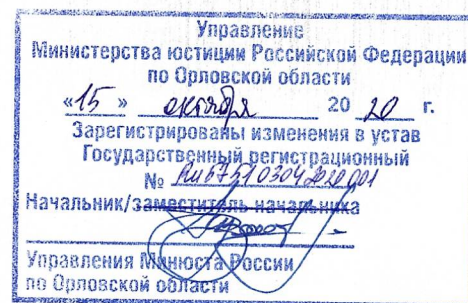 Управление
Министерства юстиции Российской Федерации
по Орловской области
«15» октября 2020 г.
Зарегистрированы изменения в устав
Государственный регистрационный
№ RU575103042020001
Начальник/заместитель начальника
Управления Минюста России
по Орловской области